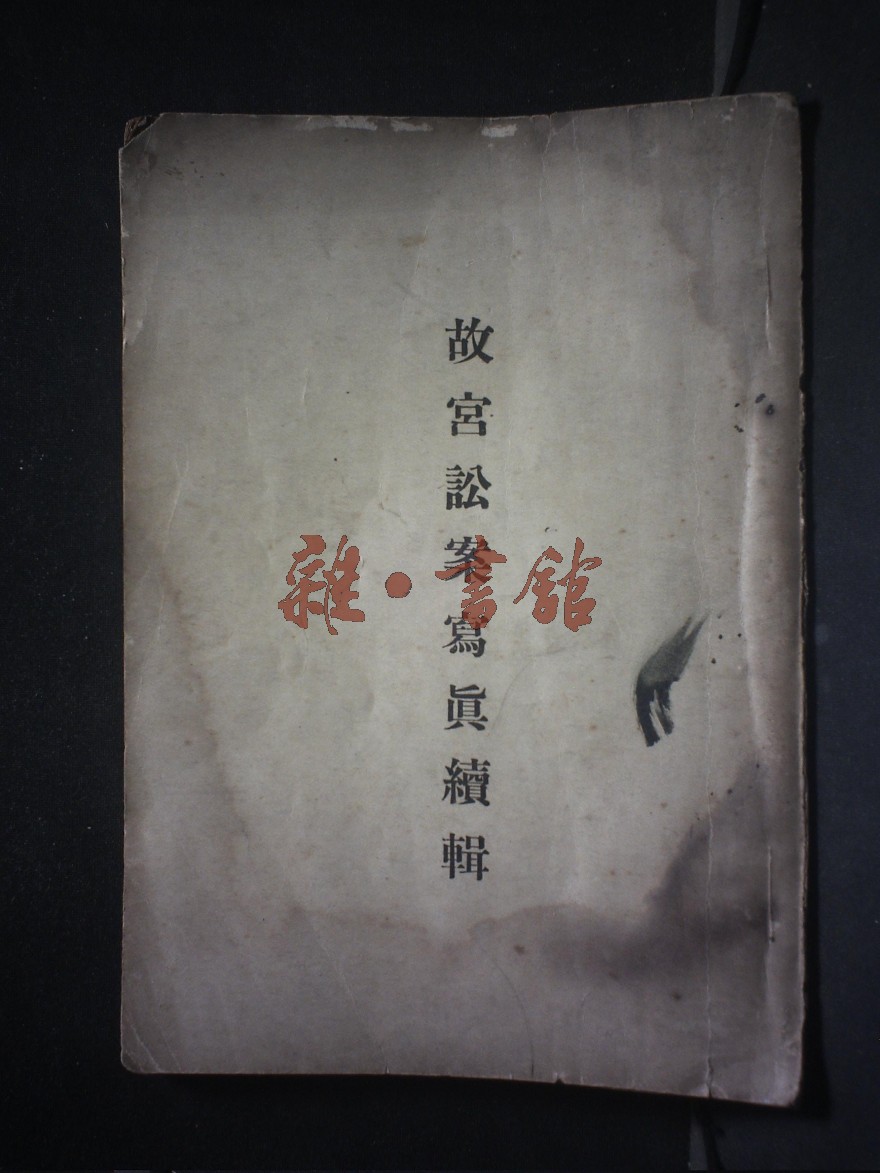 故宮訟案寫眞續輯
雜·書館